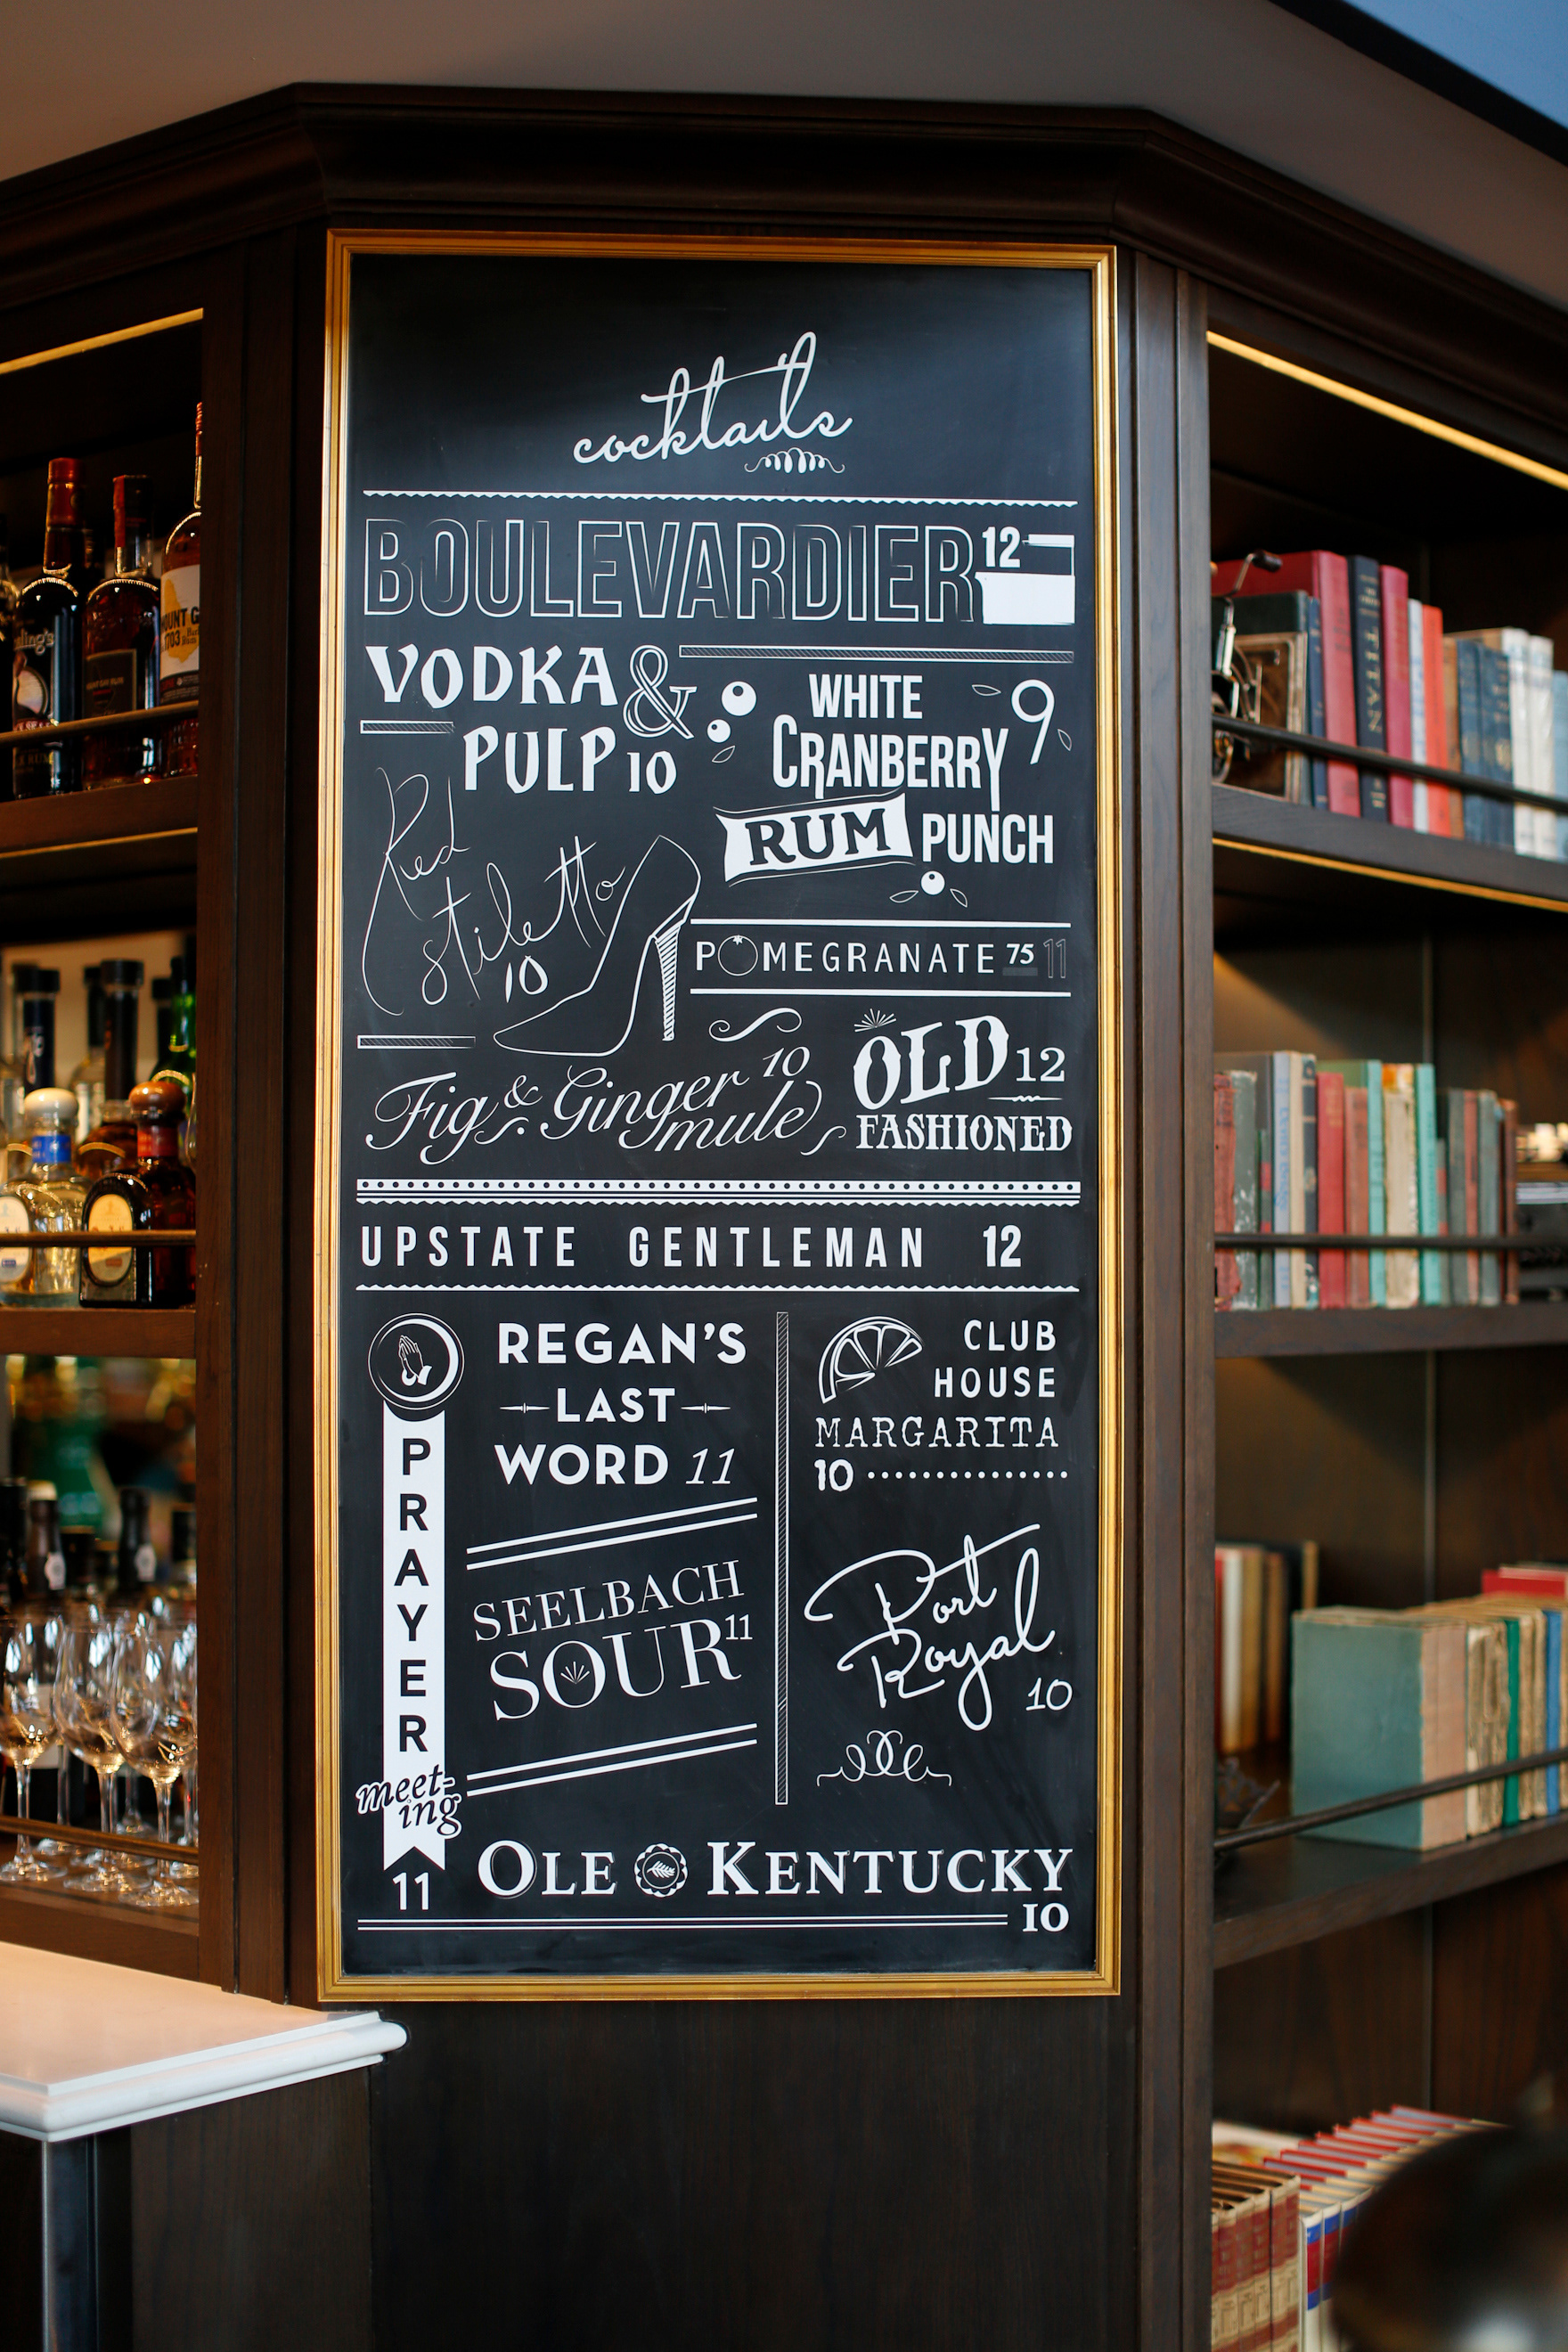 cocktails
BOULEVARDIER 12
VODKA &
PULP 10
WHITE 9
CRANBERRY
RUM PUNCH
Red
Stiletto
10
POMEGRANATE 75 11
Fig & Ginger 10
mule
OLD 12
FASHIONED
UPSTATE GENTLEMAN 12
PRAYER
meet-
ing
11
REGAN'S
LAST
WORD 11
SEELBACH
SOUR 11
CLUB
HOUSE
MARGARITA
10
Port
Royal
10
OLE KENTUCKY
10